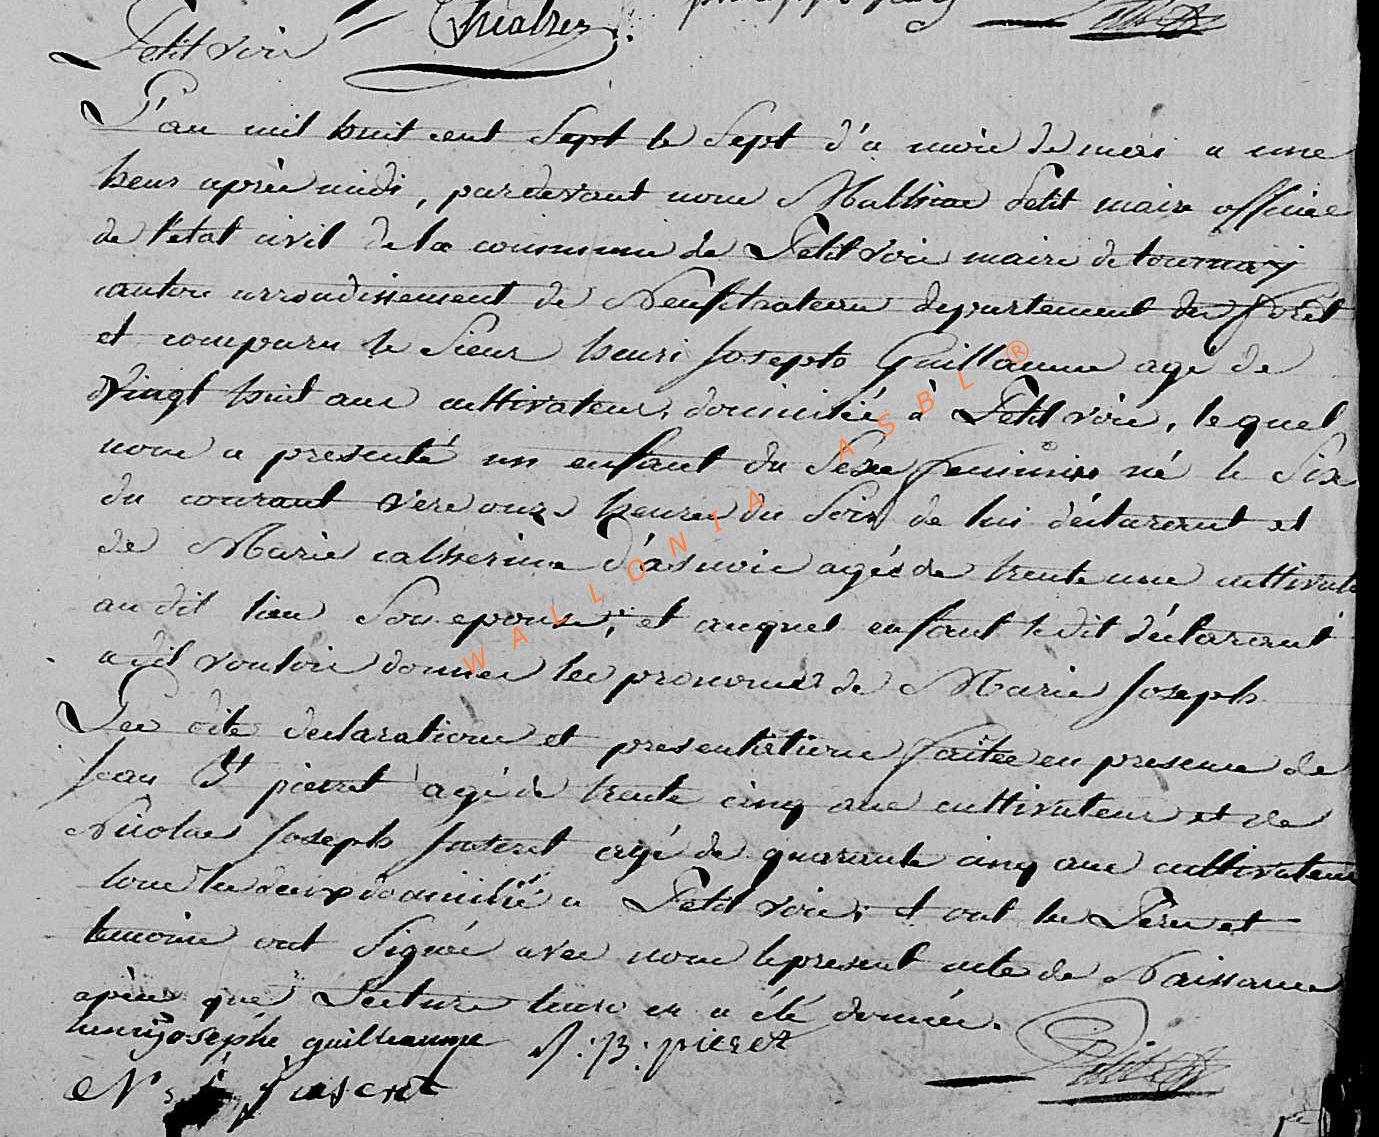 Petit voir
L'an mil huit cent Sept le Sept d'u mois de mai a une
heur après midi, pardevant nous Mathieu Petit maire officier
de l'état civil de la commune de Petit voir mairie de tournay
canton arrondissement de Neufchateau departement des forêt
et comparu le Sieur henri Joseph Guillaume agé de
Vingt huit ans cultivateur, domicilié à Petit voir, lequel
nous a presenté un enfant du Sexe feminin né le Six
du courant vers onze heures du Soir de lui déclarent et
de Marie catherine agée de trente une cultivat
au dit lieu Son epouse, et auquel enfant le dit déclarent
a dit vouloir donner les prenoms de Marie Joseph
Les dite declarations et presentations faites en presence de
Jean Bt pierret agé de trente cinq ans cultivateur et de
Nicolas Joseph agé de quarante cinq ans cultivateur
tous les deux domicilié a Petit voir, et ont les Père et
temoins ont Signés avec nous le present acte de Naissance
après que Lecture leur en a été donnée.
henry joseph guillaume J: B: pieret
N: J
W A L L O N I A A S B L ®